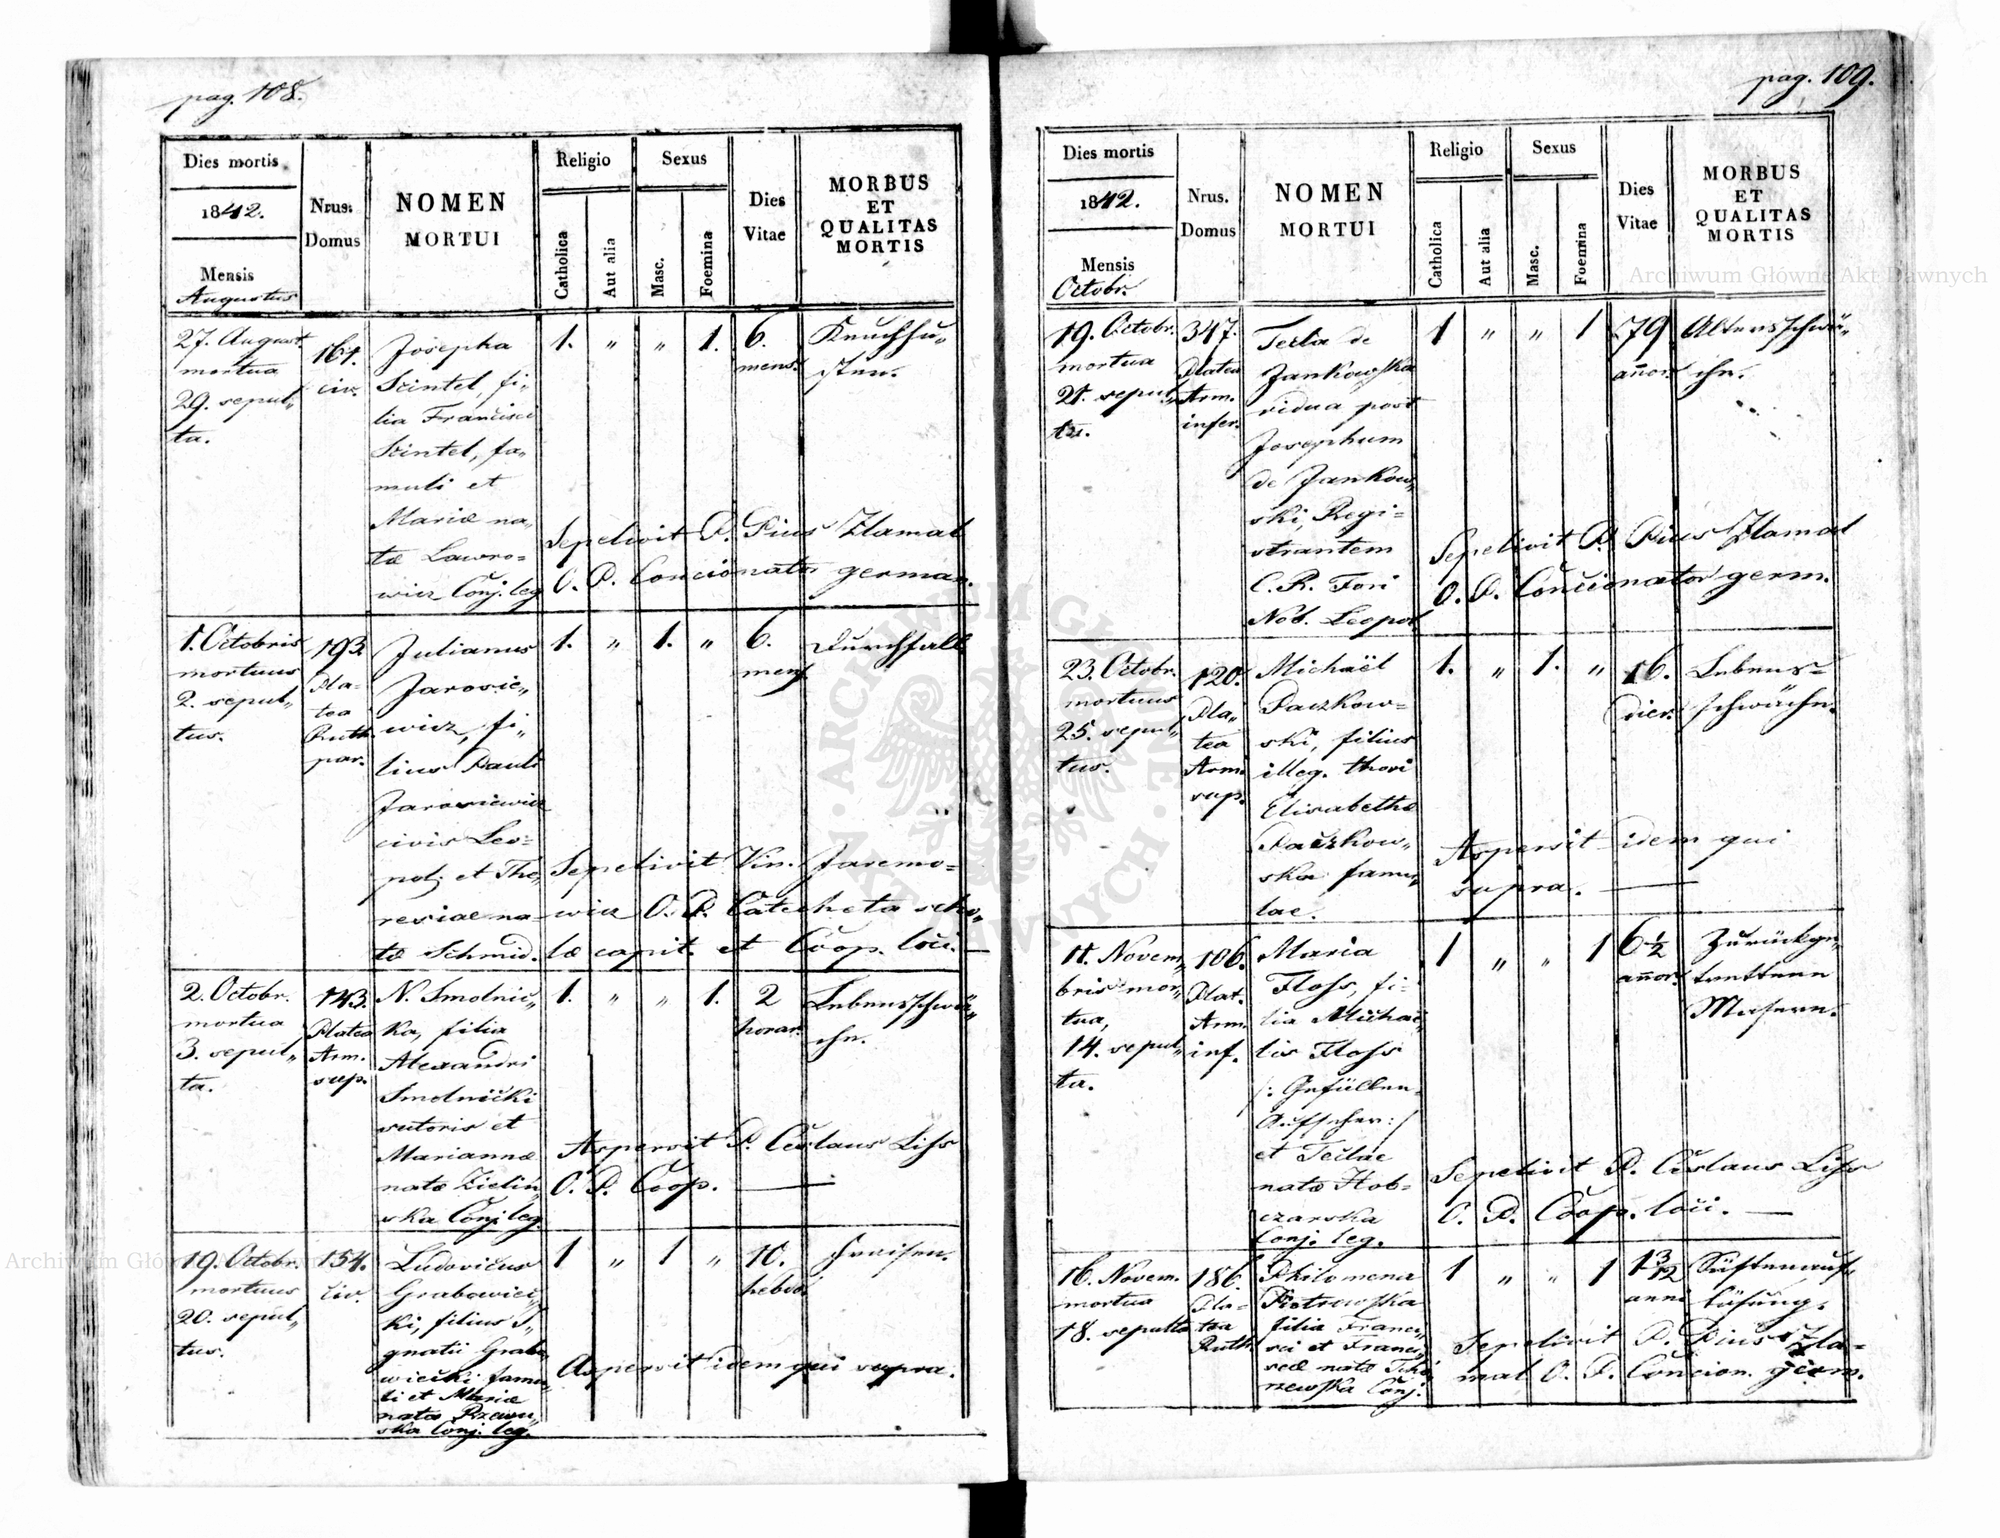 pag. 108.
Dies mortis
1842.
Mensis
Augustus
Nrus.
Domus
NOMEN
MORTUI
Religio
Catholica
Aut alia
Sexus
Masc.
Foemina
Dies
Vitae
MORBUS
ET
QUALITAS
MORTIS
27. August.
mortua
29. sepul„
ta.
164.
civ.
Josepha
Szintel, fi„
lia Francisci
Szintel, fa„
muli et
Mariæ na„
tæ Lawro=
wicz Conj. leg
1.
„
„
1.
6.
mens.
Keuchhu„
sten.
Sepelivit P. Pius Zlamal
O. P. Concionator german.
1. Octobris
mortuus
2. sepul„
tus.
193
Pla-
tea
Ruth
par.
Julianus
Jarosie„
wicz, fi„
lius Pauli
Jarosiewicz
civis Leo=
pol: et The„
resiae na
tæ Schmid.
1.
„
1.
„
6.
mens.
Durchfall
Sepelivit Vin. Jaremo=
wicz O. P. Catecheta scho„
læ capit. et Coop. loci.
2. Octobr.
mortua
3. sepul„
ta.
143
Platea
Arm.
sup.
N. Smolnic„
ka, filia
Alexandri
Smolnicki
sutoris et
Mariannæ
natæ Zielin„
ska Conj. leg.
1.
„
„
1.
2
horar.
Lebensschwä„
che.
Aspersit P. Ceslaus Liss
O. P. Coop.
19. Octobr.
mortuus
20. sepul„
tus.
154.
civ.
Ludovicus
Grabowiec„
ki, filius I„
gnatii Grabo
wiecki famu„
li et Mariæ
natæ Rzewu„
ska Conj. leg.
1
„
1
„
10.
hebdo.
Fraisen.
Aspersit idem qui supra.
pag. 109.
Dies mortis
1842.
Mensis
Octobr.
Nrus.
Domus
NOMEN
MORTUI
Religio
Catholica
Aut alia
Sexus
Masc.
Foemina
Dies
Vitae
MORBUS
ET
QUALITAS
MORTIS
19. Octobr.
mortua
21. sepul„
ta.
347.
Platea
Arm.
infer.
Tecla de
Jankowska
vidua post
Josephum
de Jankow„
ski, Regi=
strantem
C. R. Fori
Nob. Leopol.
1
„
„
1
79
añor.
Altersschwä„
che.
Sepelivit P. Pius Zlamal
O. P. Concionator germ.
23. Octobr.
mortuus
25. sepul„
tus.
120.
Pla„
tea
Arm.
sup.
Michaël
Paczkow=
ski, filius
illeg. thori
Elisabethæ
Paczkow„
ska famu„
lae.
1.
„
1.
„
16.
dier.
Lebens=
schwäche.
Aspersit idem qui
supra.
11. Novem„
bris mor„
tua,
14. sepul„
ta.
106.
Plat.
Arm.
inf.
Maria
Floss, fi-
lia Michaë„
lis Floss
/: Gefällen-
Aufseher :/
et Teclae
natæ Hob=
czarska
Conj. leg.
1
„
„
1
6 1/2
añor.
Zurückge„
trettene
Masern.
Sepelivit P. Ceslaus Liss
O. P. Coop. loci.
16. Novem.
mortua
18. sepulta
186
Pla=
tea
Ruth.
Philomena
Pietrowska
filia Franci„
sci et Franci„
scæ natæ
Conj.
1
„
„
1
1 3/12
anni
Säftenauf„
lösung.
Sepelivit P. Pius Zla=
mal O. P. Concion. germ.
Archiwum Główne Akt Dawnych